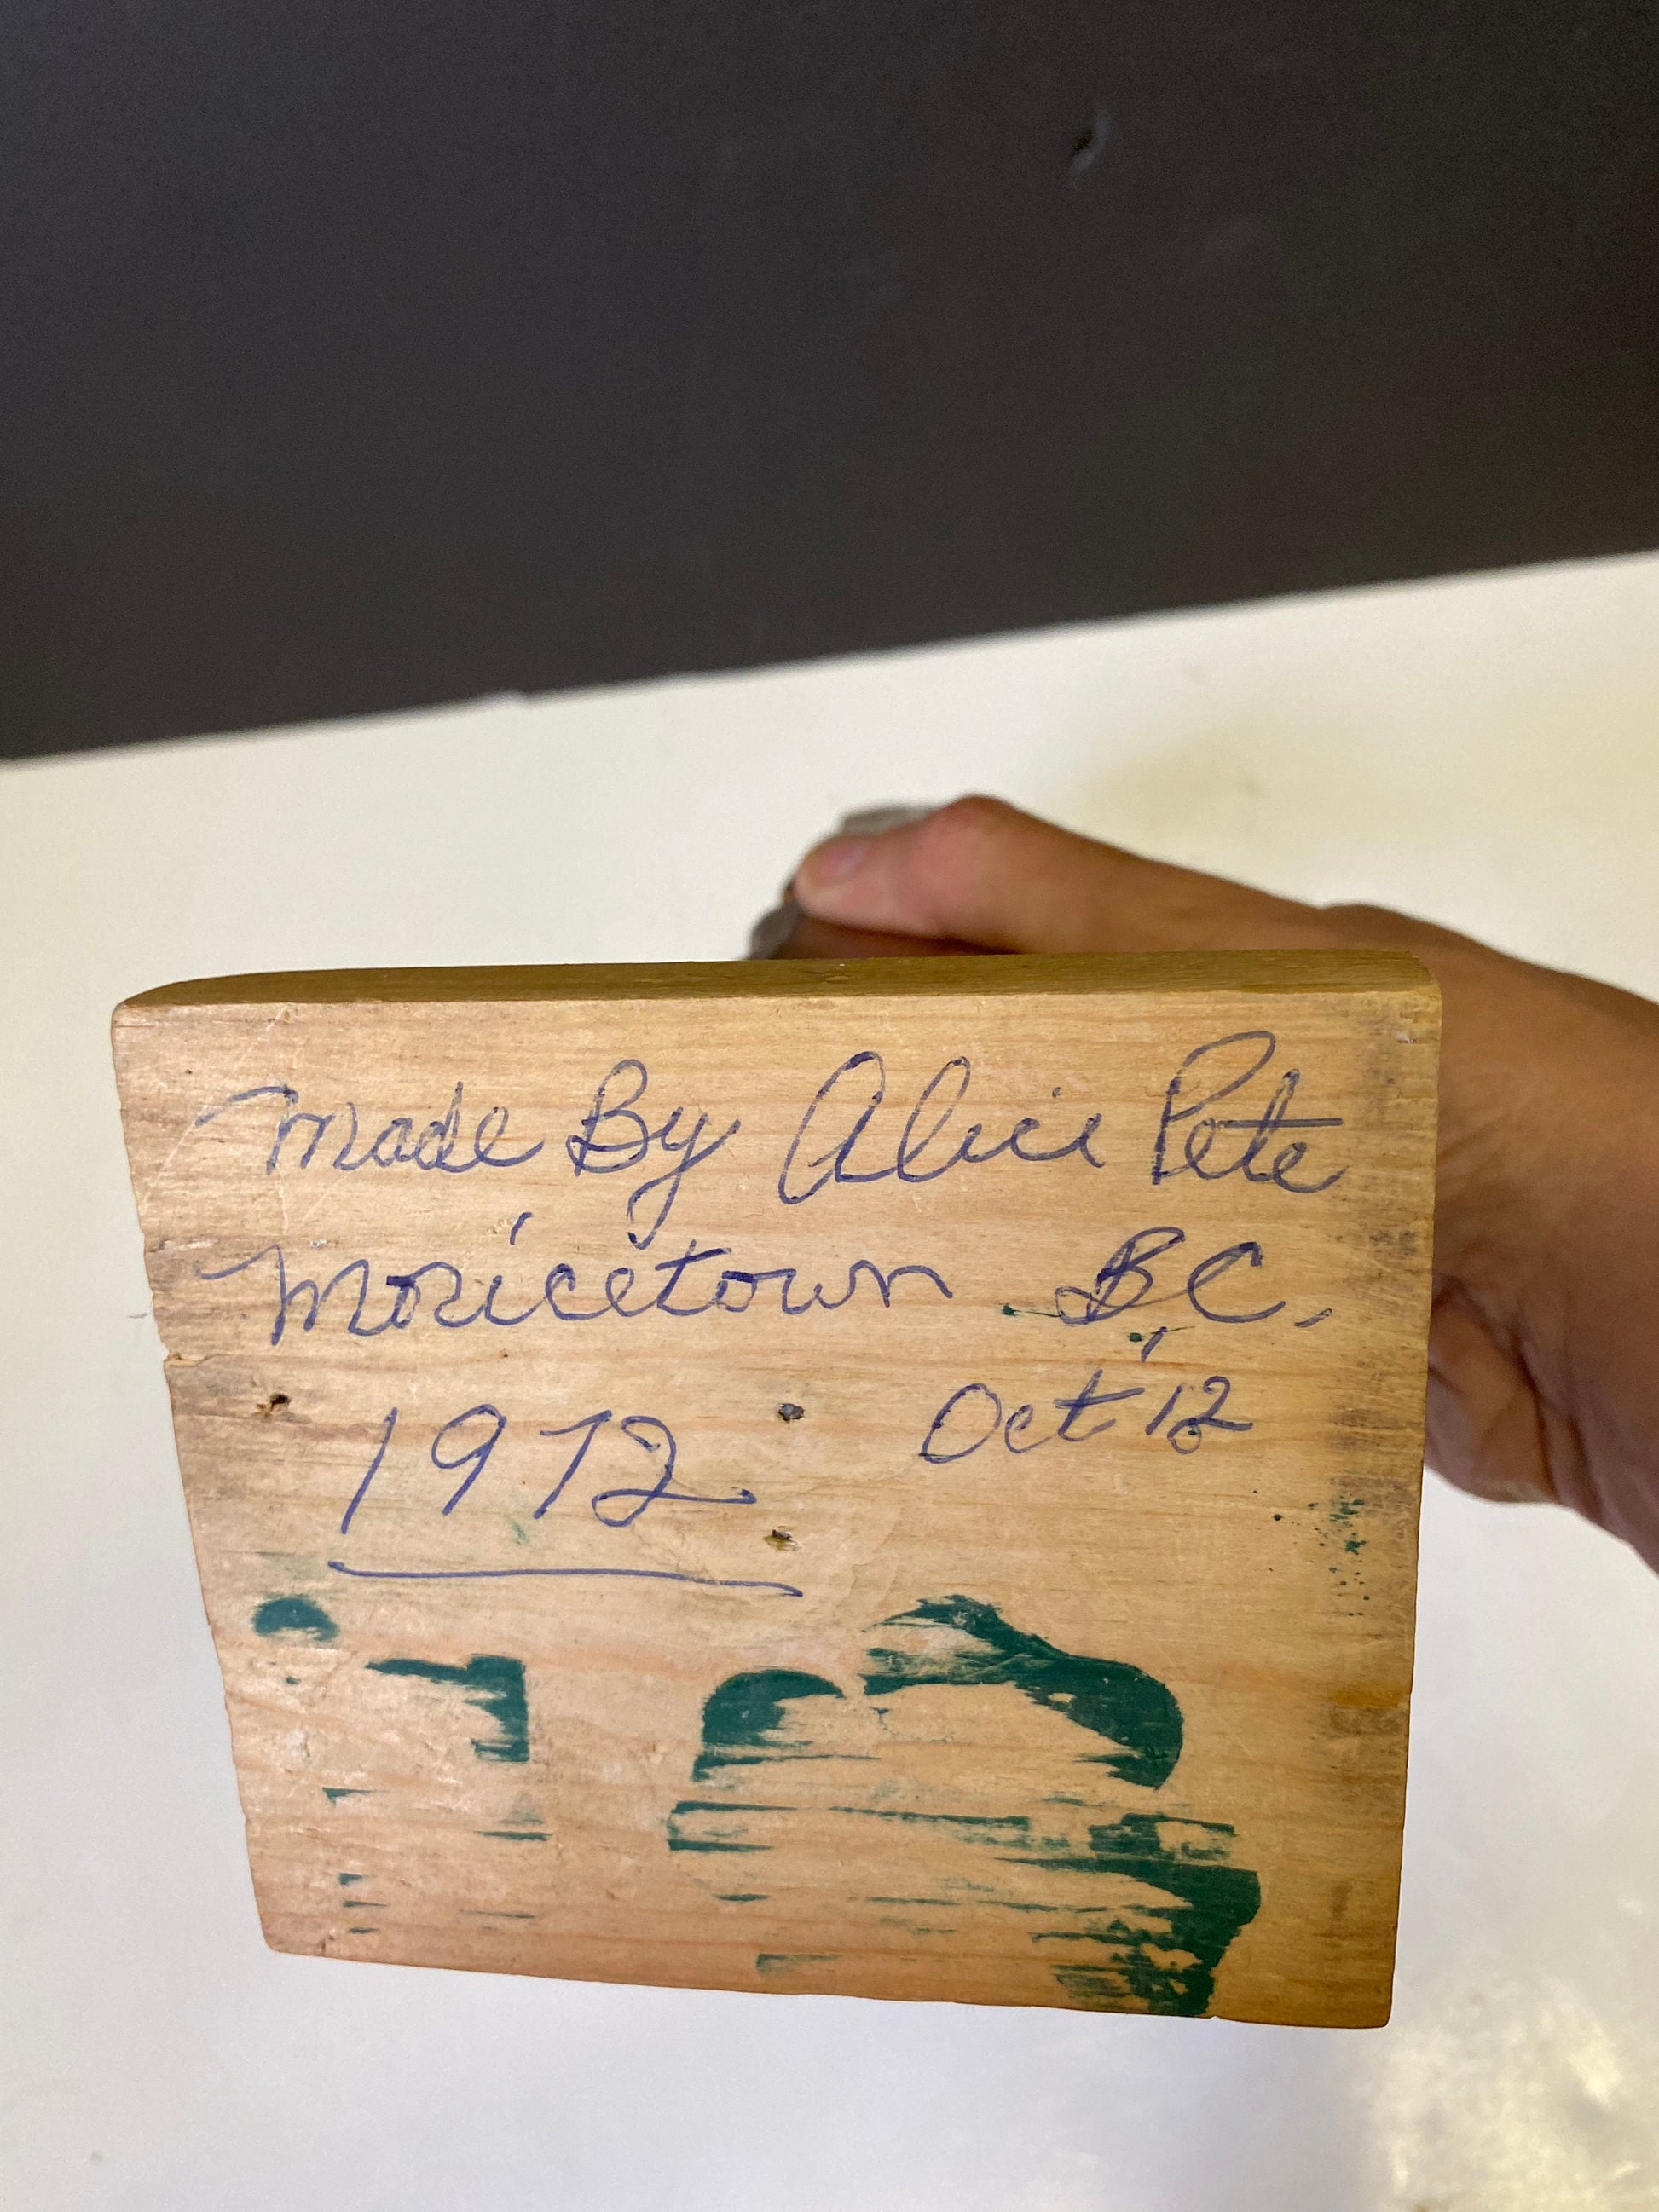 Made By Alice Pete
Moricetown B.C.
Oct 12
1972